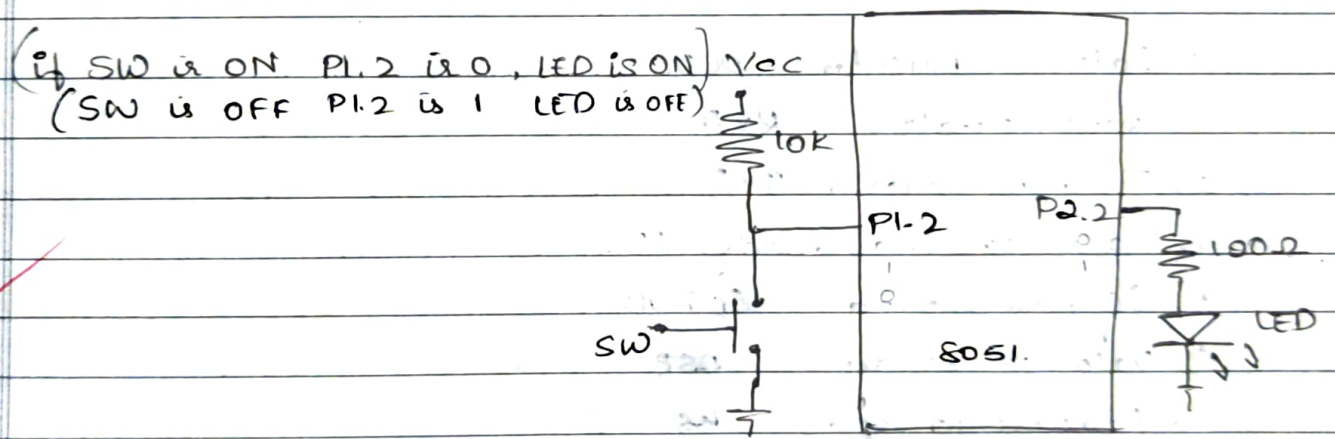 (if SW is ON P1.2 is 0, LED is ON) Vcc
(SW is OFF P1.2 is 1 LED is OFF)
10K
P1-2
P2.2
1 0
0 1
100Ω
SW
8051.
LED